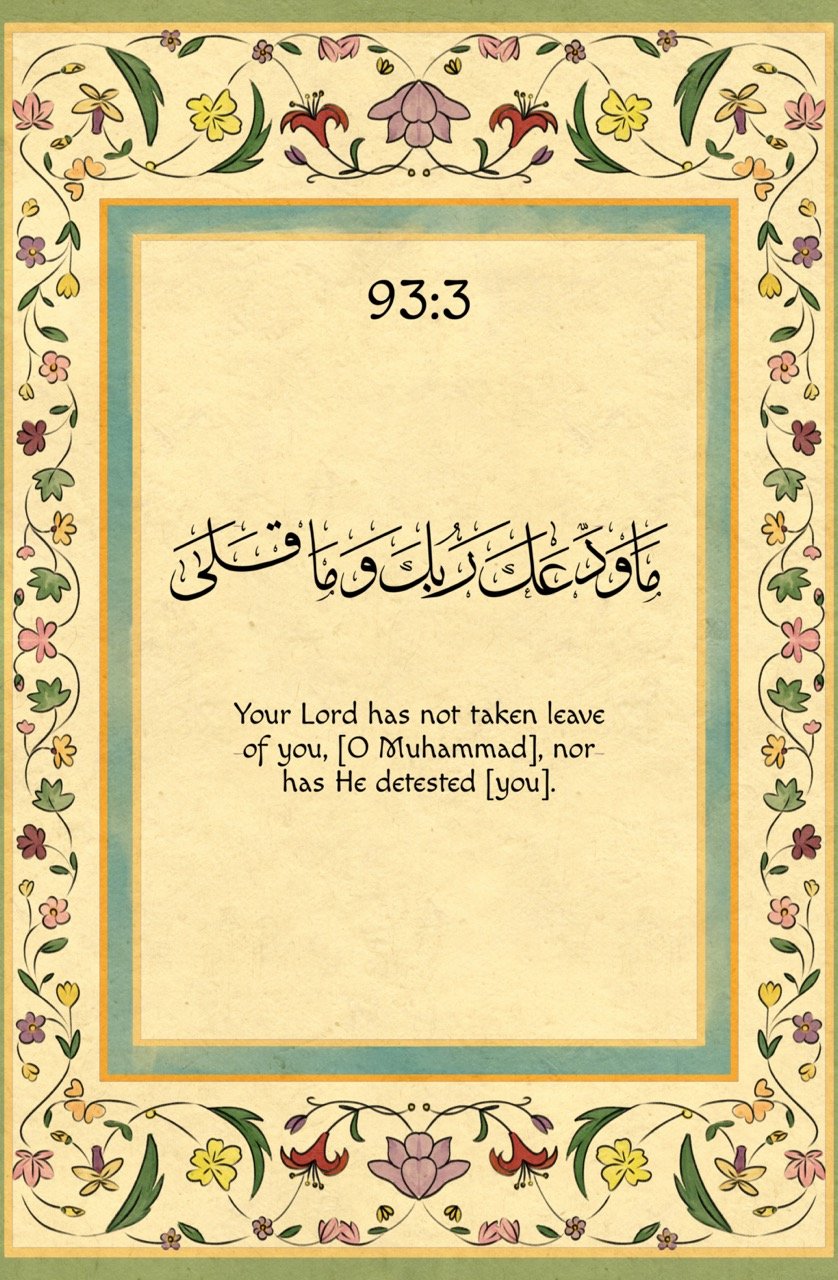 93:3
مَا وَدَّعَكَ رَبُّكَ وَمَا قَلَىٰ
Your Lord has not taken leave
of you, [O Muhammad], nor
has He detested [you].